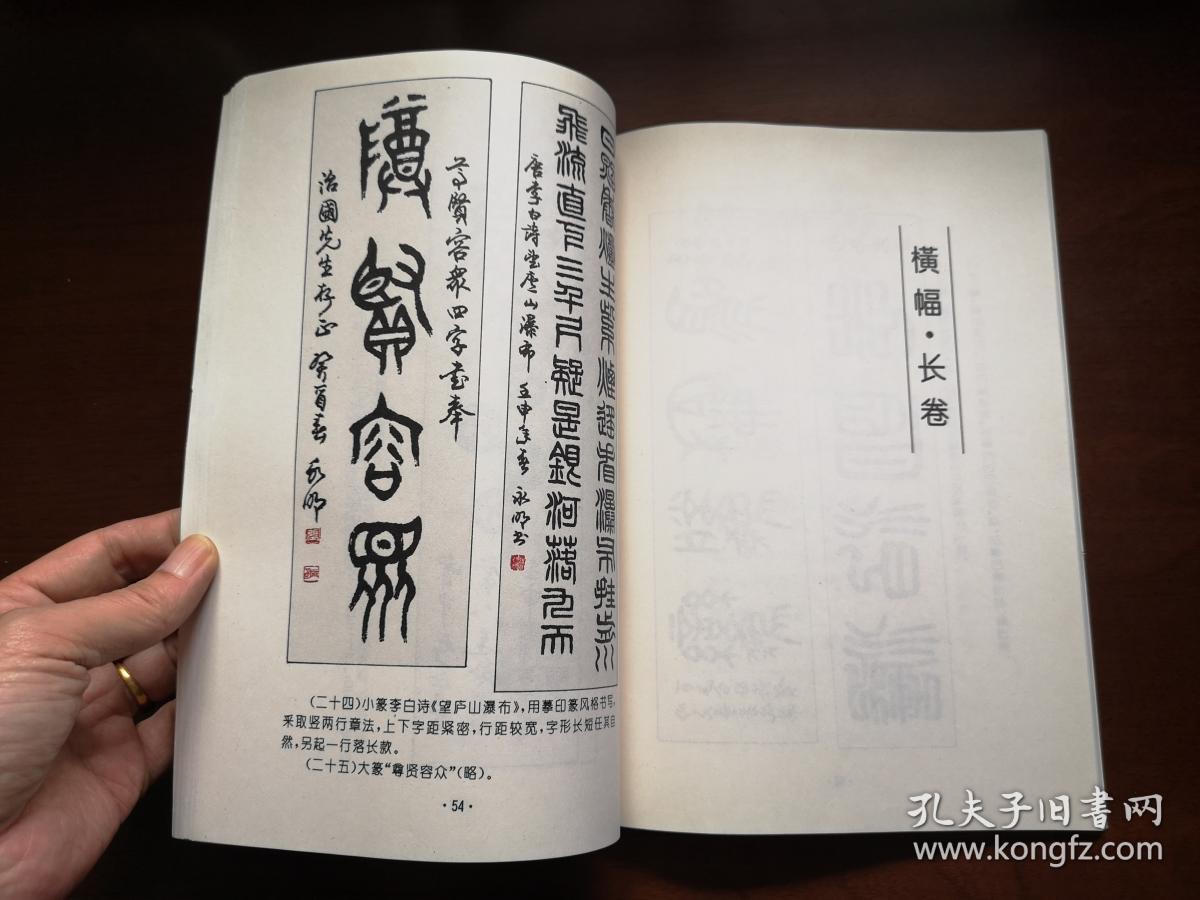 日照香爐生紫煙遙看瀑布挂前川
飛流直下三千尺疑是銀河落九天
唐李白詩望庐山瀑布 壬申年春 永明书
尊賢容眾四字书奉
尊賢容眾
治國先生存正 癸酉春 永明
(二十四)小篆李白诗《望庐山瀑布》,用摹印篆风格书写,
采取竖两行章法,上下字距紧密,行距较宽,字形长短任其自
然,另起一行落长款。
(二十五)大篆“尊贤容众”(略)。
·54·
横幅·长卷
孔夫子旧書网
www.kongfz.com